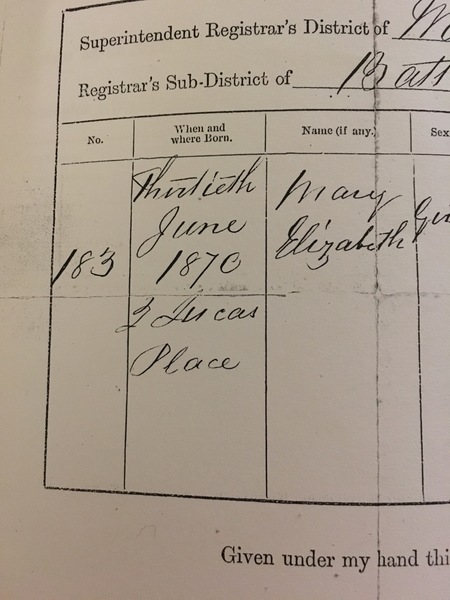 Superintendent Registrar's District of
Registrar's Sub-District of
No.
When and
where Born.
Name (if any.)
Sex
183
Thirtieth
June
1870
2 Lucas
Place
Mary
Elizabeth
Given under my hand